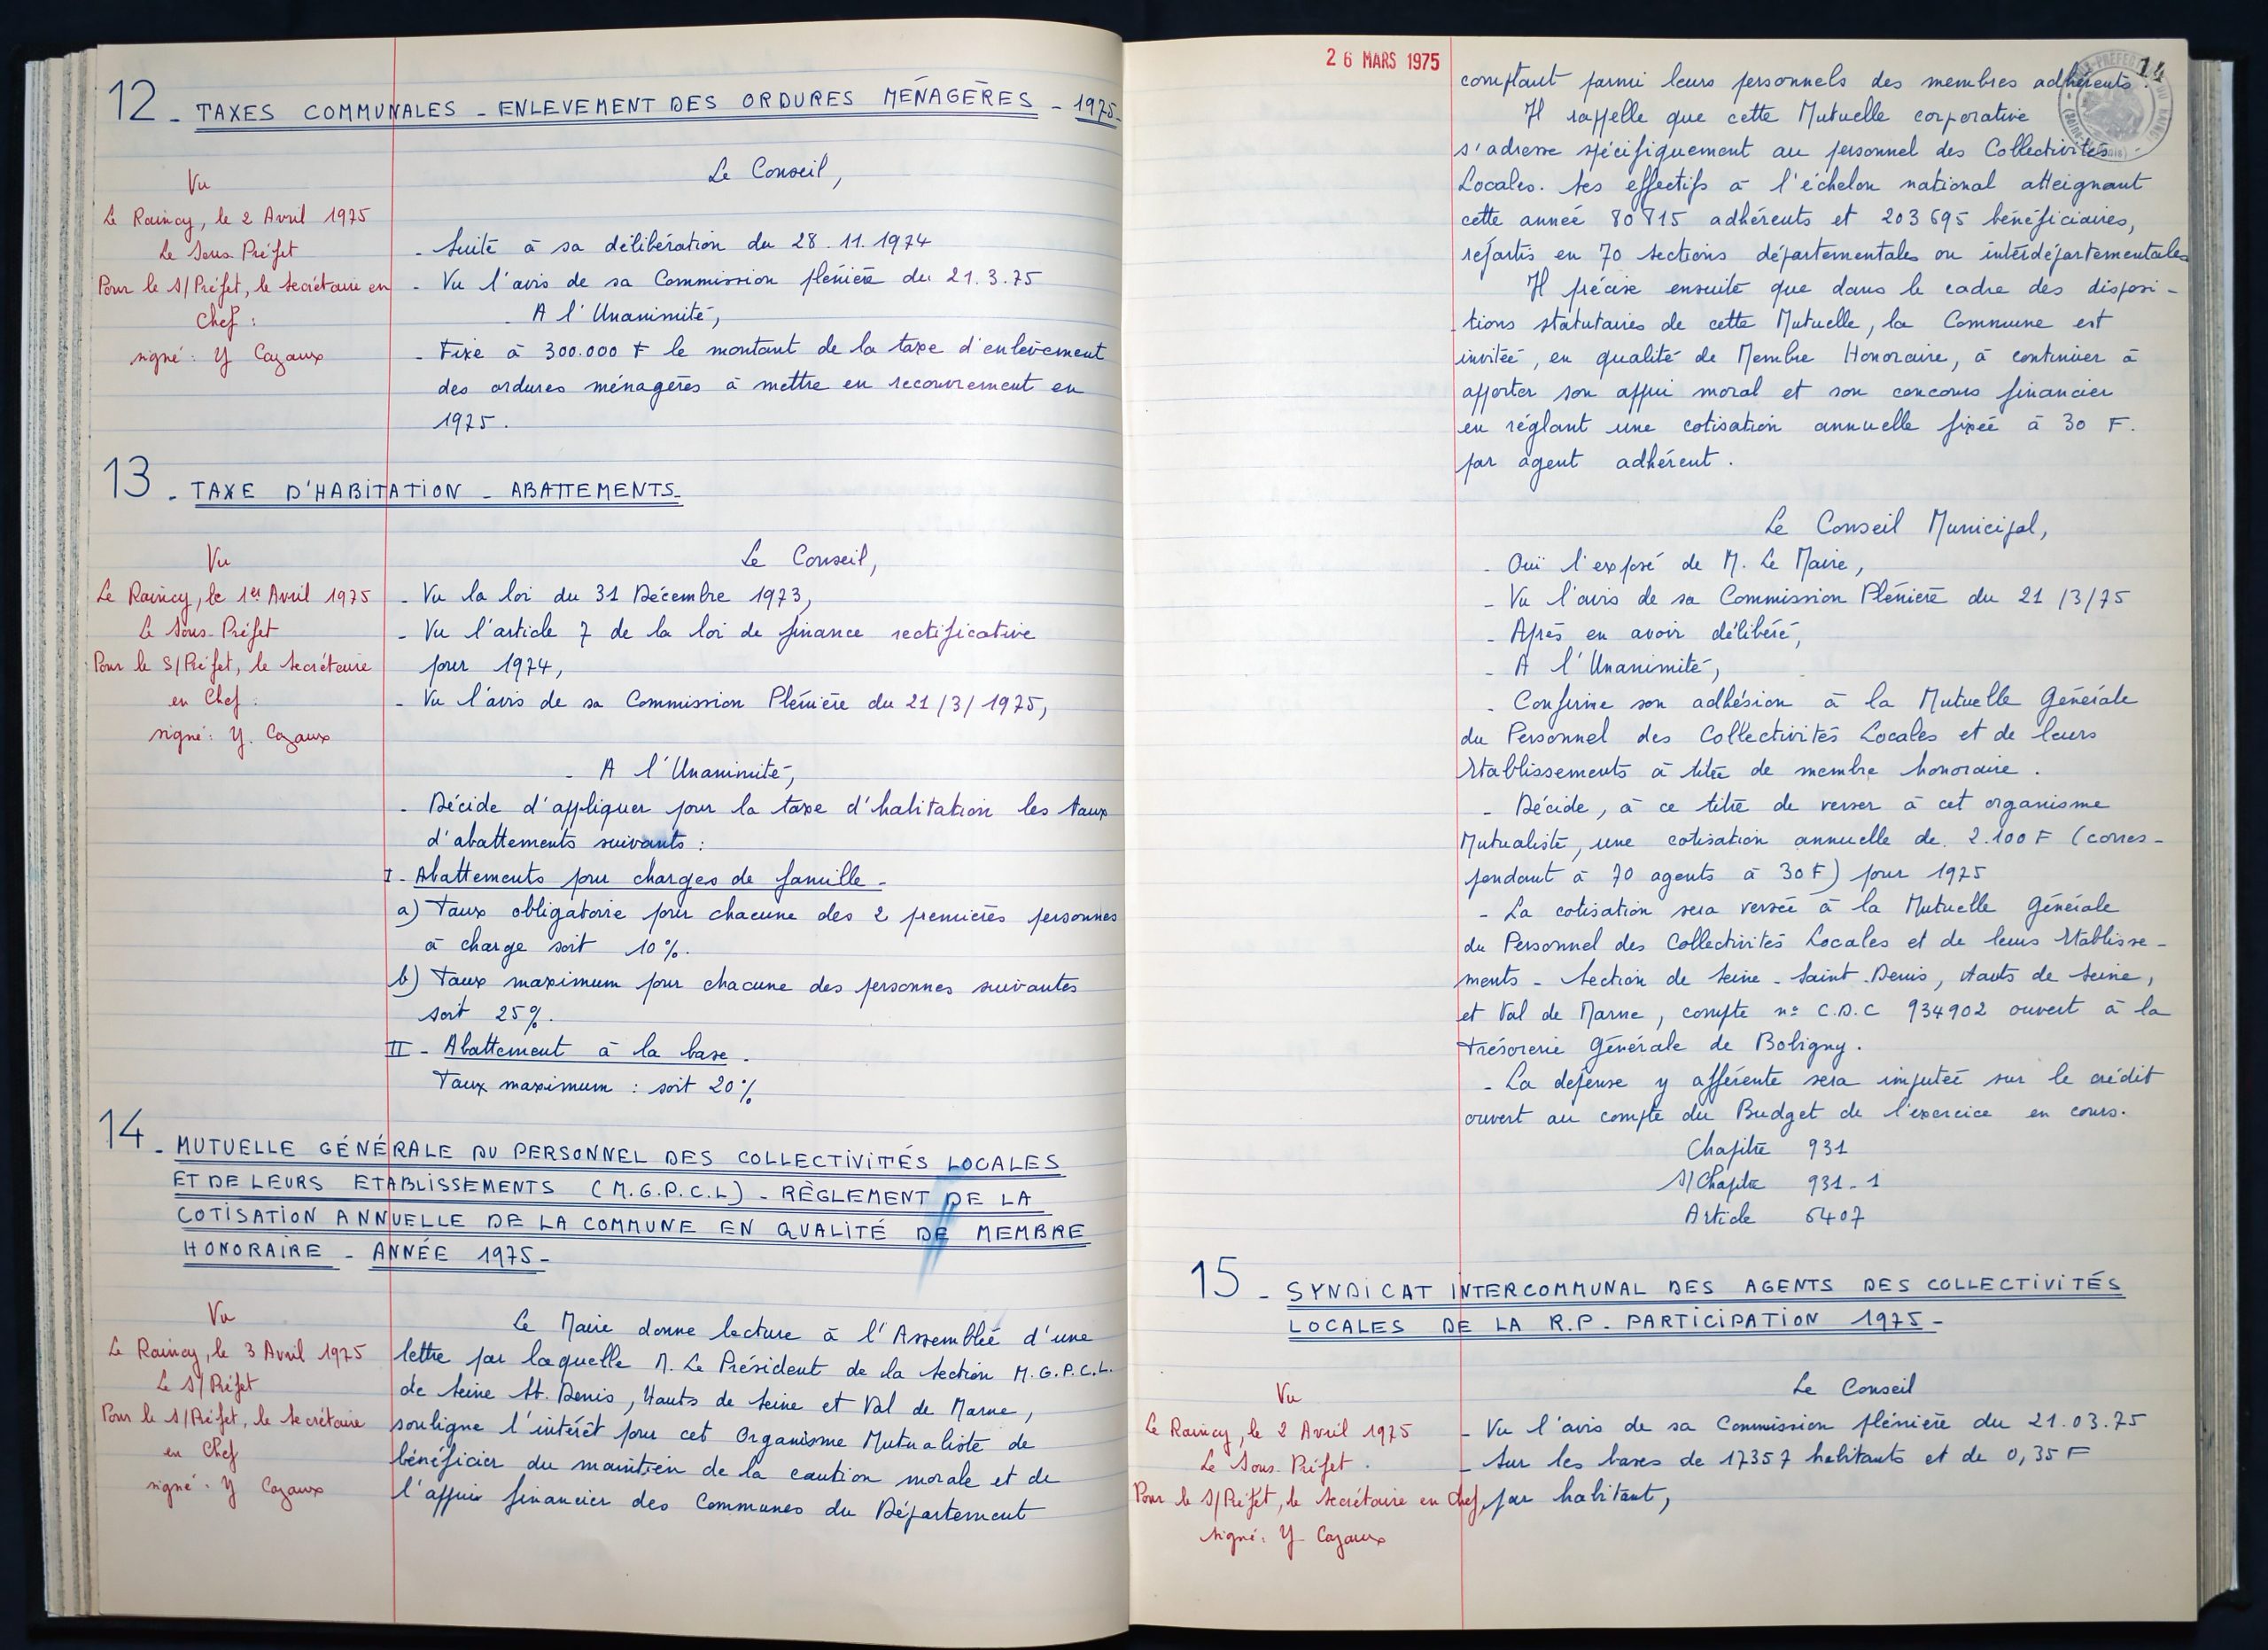 12 - TAXES COMMUNALES - ENLEVEMENT DES ORDURES MÉNAGÈRES - 1975 -
Le Conseil,
Vu
Le Raincy, le 2 Avril 1975
Le Sous-Préfet
Pour le S/Préfet, le Secrétaire en
Chef :
signé : Y Cazaux
- Suite à sa délibération du 28.11.1974
- Vu l'avis de sa Commission plénière du 21.3.75
- A l'Unanimité,
- Fixe à 300.000 F le montant de la taxe d'enlèvement
des ordures ménagères à mettre en recouvrement en
1975.
13 - TAXE D'HABITATION - ABATTEMENTS -
Vu
Le Raincy, le 1er Avril 1975
Le Sous-Préfet
Pour le S/Préfet, le Secrétaire
en Chef :
signé : Y. Cazaux
Le Conseil,
- Vu la loi du 31 Décembre 1973,
- Vu l'article 7 de la loi de finance rectificative
pour 1974,
- Vu l'avis de sa Commission Plénière du 21/3/1975,
- A l'Unanimité,
- Décide d'appliquer pour la taxe d'habitation les taux
d'abattements suivants :
I - Abattements pour charges de famille -
a) Taux obligatoire pour chacune des 2 premières personnes
à charge soit 10%.
b) Taux maximum pour chacune des personnes suivantes
soit 25%.
II - Abattement à la base.
Taux maximum : soit 20%
14 - MUTUELLE GÉNÉRALE DU PERSONNEL DES COLLECTIVITÉS LOCALES
ET DE LEURS ETABLISSEMENTS (M.G.P.C.L) - RÈGLEMENT DE LA
COTISATION ANNUELLE DE LA COMMUNE EN QUALITÉ DE MEMBRE
HONORAIRE - ANNÉE 1975 -
Vu
Le Raincy, le 3 Avril 1975
Le S/Préfet
Pour le S/Préfet, le Secrétaire
en Chef
signé : Y Cazaux
Le Maire donne lecture à l'Assemblée d'une
lettre par laquelle M. Le Président de la Section M.G.P.C.L.
de Seine St. Denis, Hauts de Seine et Val de Marne,
souligne l'intérêt pour cet Organisme Mutualiste de
bénéficier du maintien de la caution morale et de
l'appui financier des Communes du Département
26 MARS 1975
14
comptant parmi leurs personnels des membres adhérents.
Il rappelle que cette Mutuelle corporative
s'adresse spécifiquement au personnel des Collectivités
Locales. Ses effectifs à l'échelon national atteignant
cette année 80 815 adhérents et 203 695 bénéficiaires,
répartis en 70 sections départementales ou interdépartementales
Il précise ensuite que dans le cadre des disposi-
tions statutaires de cette Mutuelle, la Commune est
invitée, en qualité de Membre Honoraire, à continuer à
apporter son appui moral et son concours financier
en réglant une cotisation annuelle fixée à 30 F.
par agent adhérent.
Le Conseil Municipal,
- Ouï l'exposé de M. Le Maire,
- Vu l'avis de sa Commission Plénière du 21/3/75
- Après en avoir délibéré,
- A l'Unanimité,
- Confirme son adhésion à la Mutuelle Générale
du Personnel des Collectivités Locales et de leurs
Etablissements à titre de membre honoraire.
- Décide, à ce titre de verser à cet organisme
Mutualiste, une cotisation annuelle de 2.100 F (corres-
pondant à 70 agents à 30 F) pour 1975
- La cotisation sera versée à la Mutuelle Générale
du Personnel des Collectivités Locales et de leurs Etablisse-
ments - Section de Seine-Saint-Denis, Hauts de Seine,
et Val de Marne, compte n° C.D.C 934902 ouvert à la
Trésorerie Générale de Bobigny.
- La dépense y afférente sera imputée sur le crédit
ouvert au compte du Budget de l'exercice en cours.
Chapitre 931
S/Chapitre 931-1
Article 6407
15 - SYNDICAT INTERCOMMUNAL DES AGENTS DES COLLECTIVITÉS
LOCALES DE LA R.P. PARTICIPATION 1975 -
Vu
Le Raincy, le 2 Avril 1975
Le Sous-Préfet.
Pour le S/Préfet, le Secrétaire en Chef,
signé : Y Cazaux
Le Conseil
- Vu l'avis de sa Commission plénière du 21.03.75
- Sur les bases de 17357 habitants et de 0,35 F
par habitant,